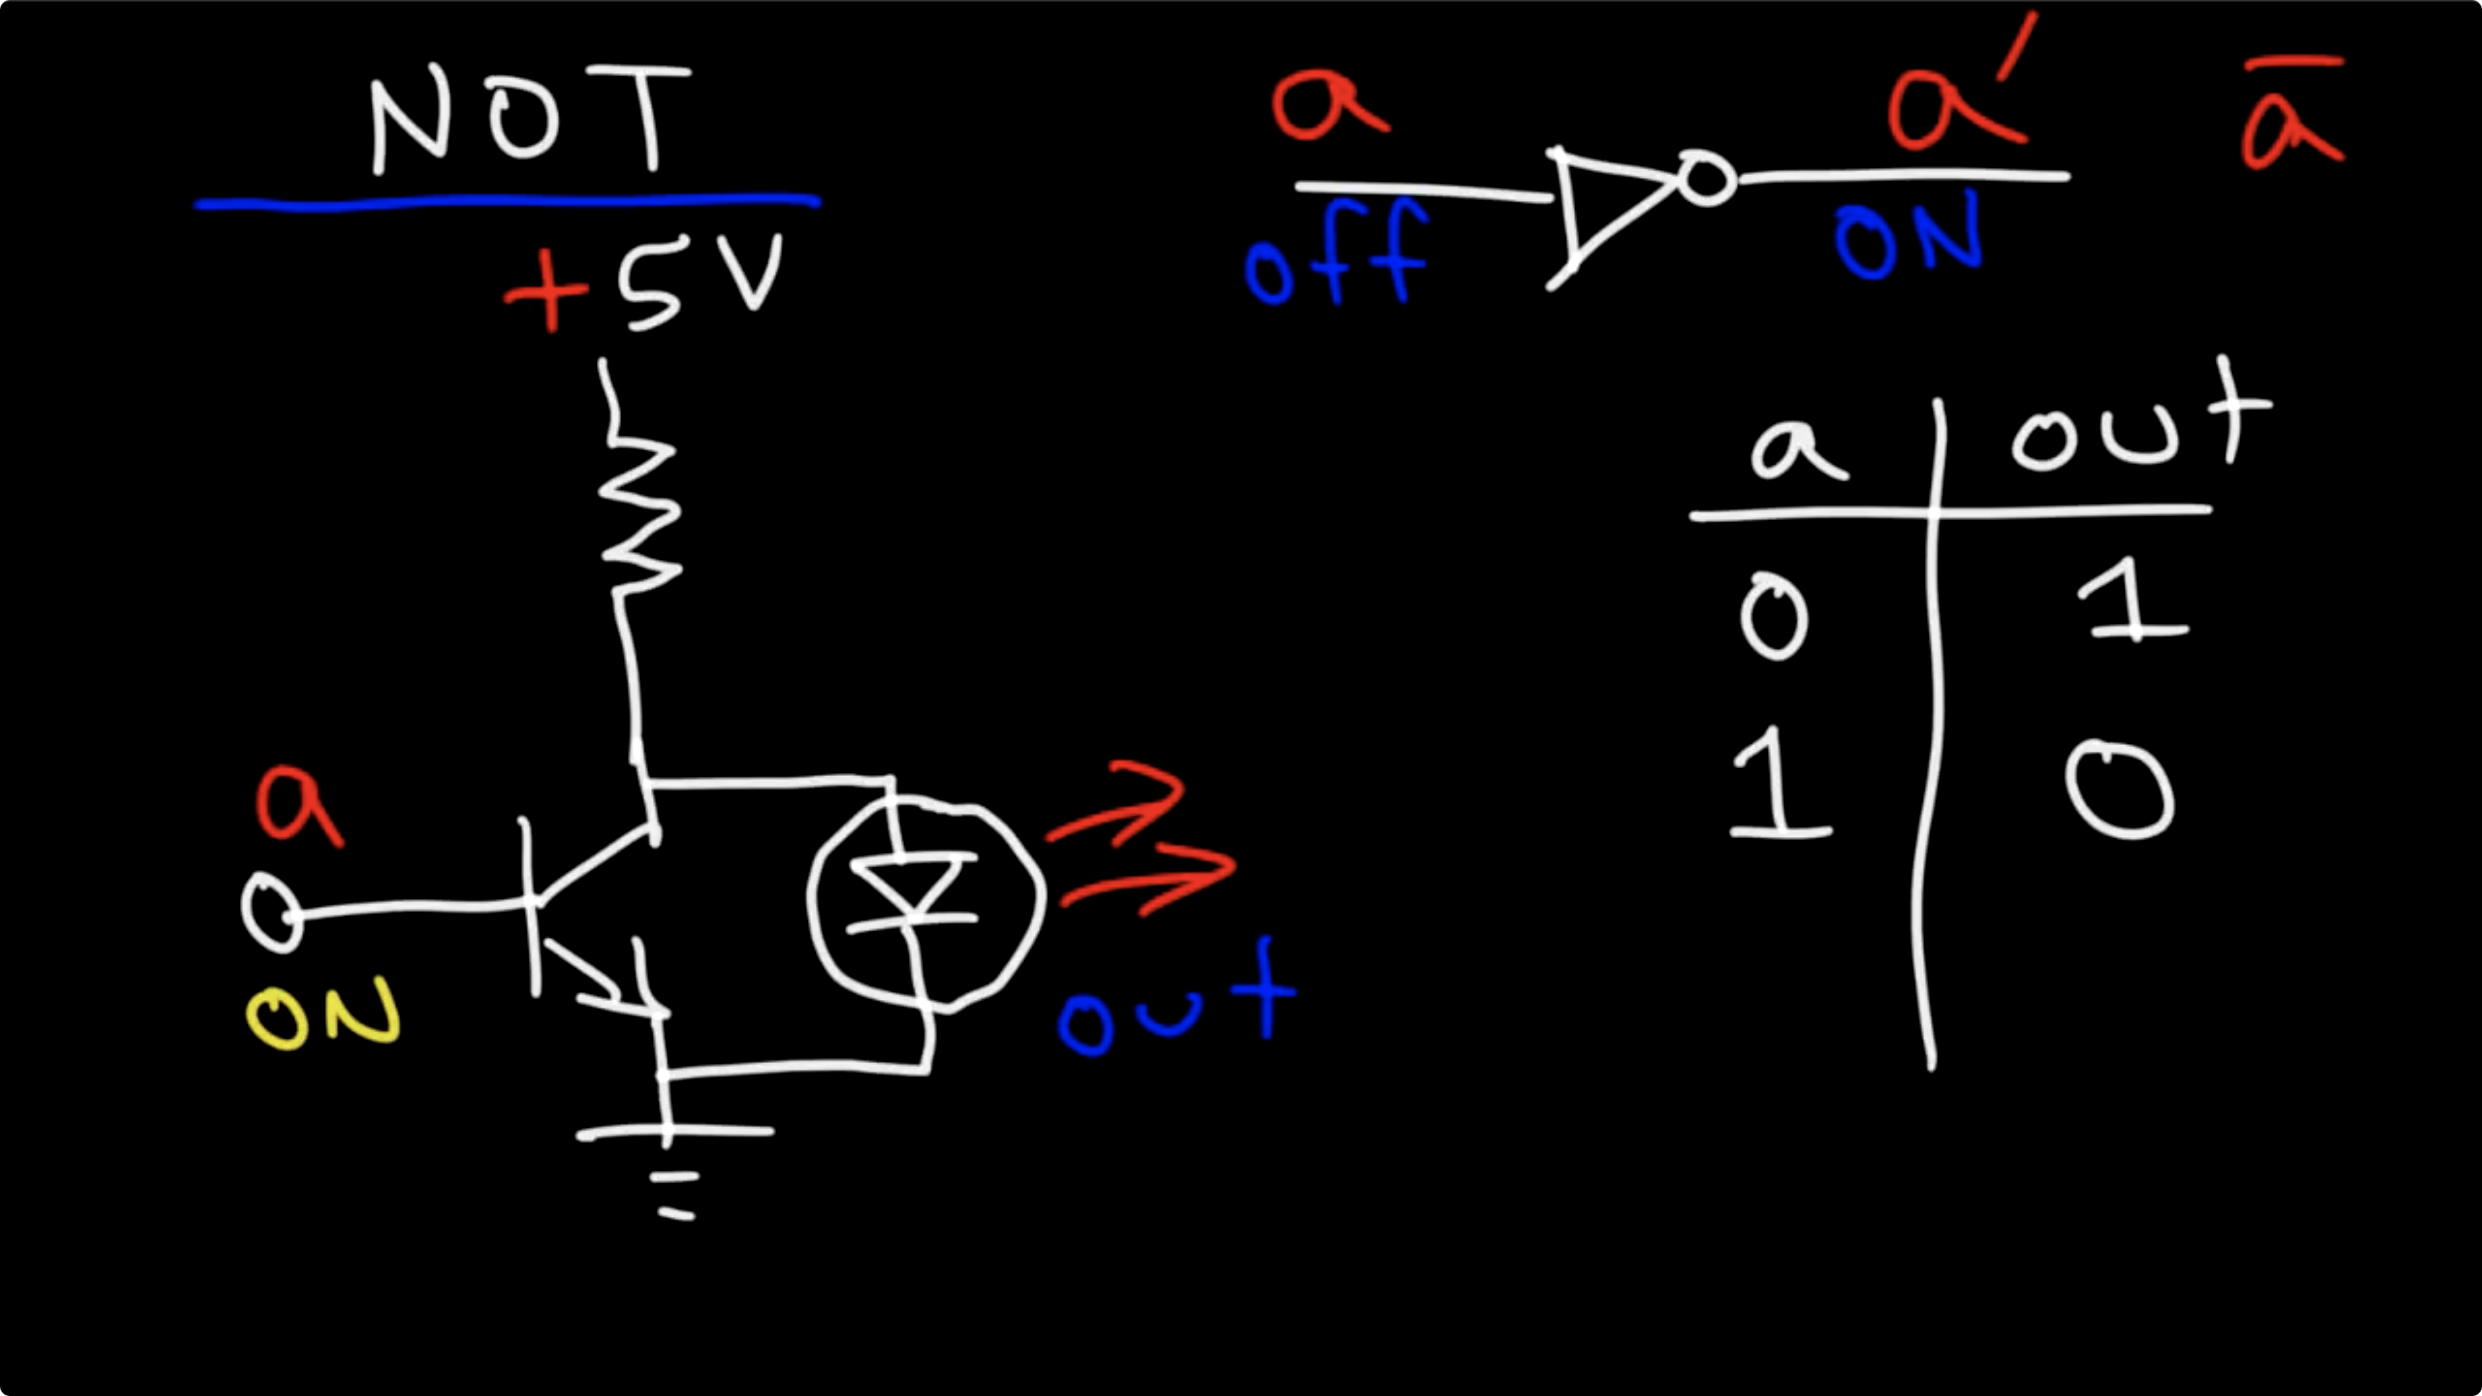 NOT
+5V
a
ON
out
a a' a̅
off ON
a out
0 1
1 0